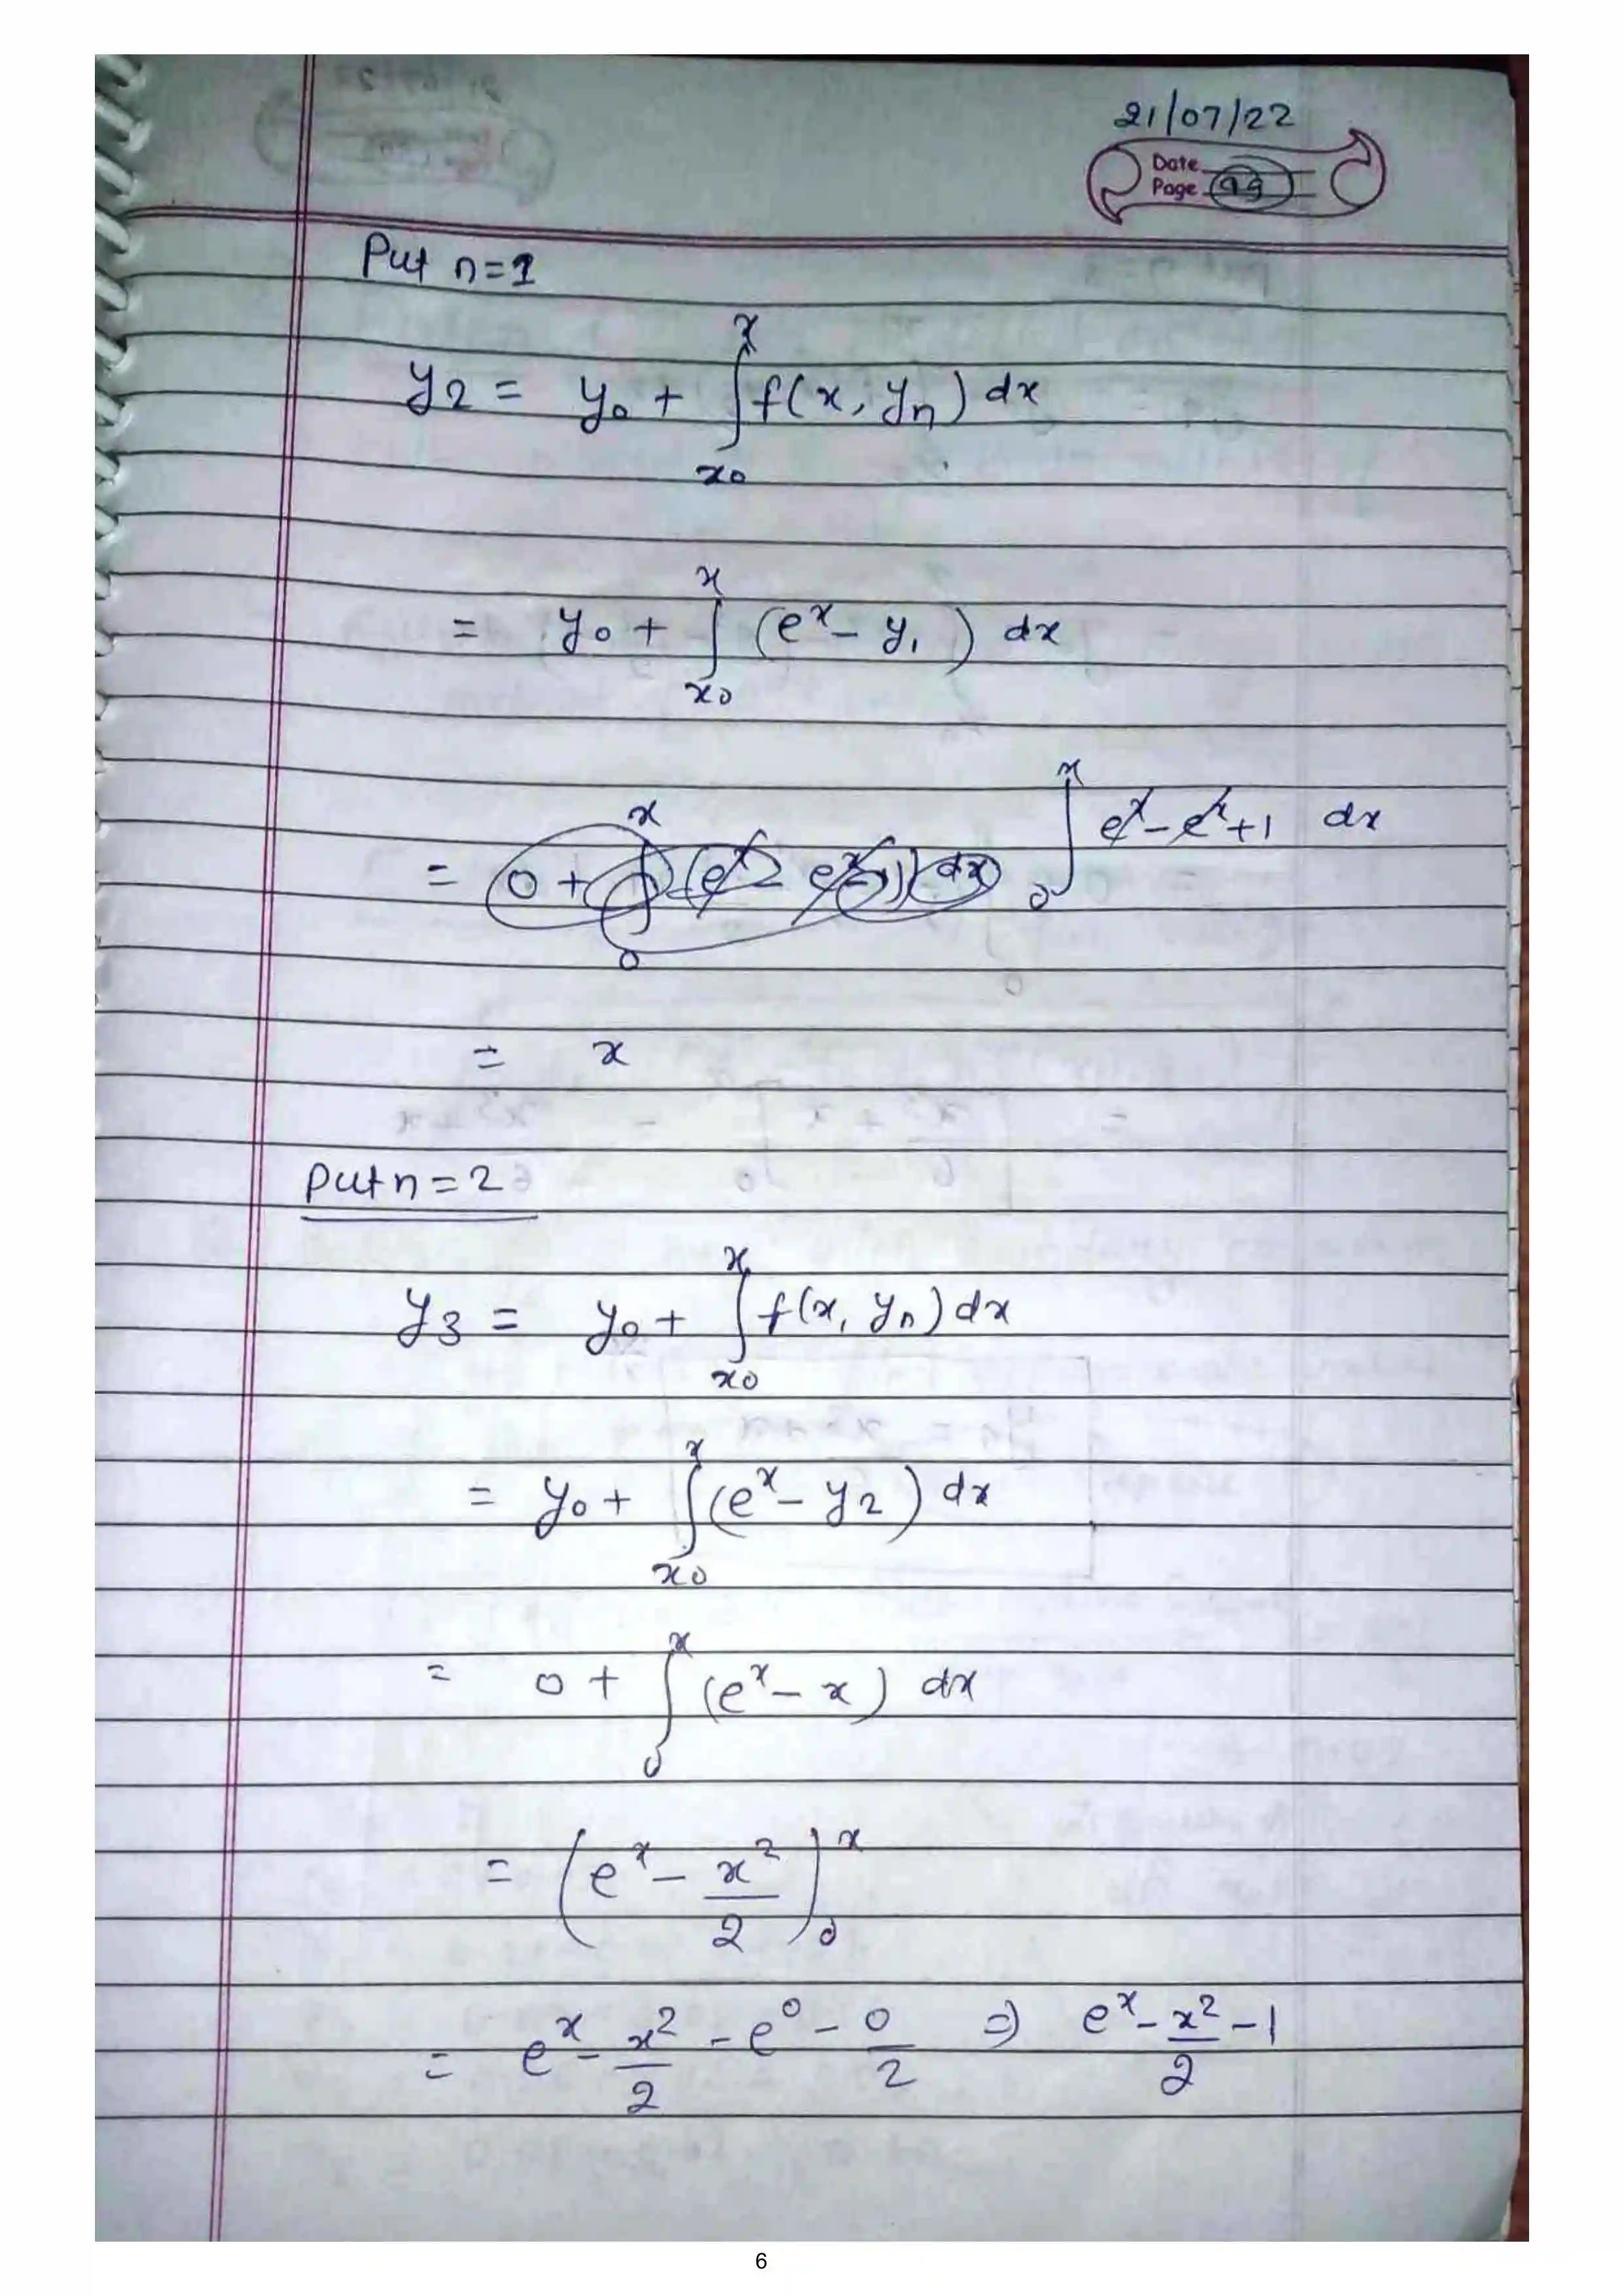 21/07/22
Date
Page
Put n=1
y2 = y0 + ∫_{x0}^{x} f(x, yn) dx
= y0 + ∫_{x0}^{x} (e^x - y1) dx
= ∫_{0}^{x} e^x - e^x + 1 dx
= x
Put n = 2
y3 = y0 + ∫_{x0}^{x} f(x, yn) dx
= y0 + ∫_{x0}^{x} (e^x - y2) dx
= 0 + ∫_{0}^{x} (e^x - x) dx
= (e^x - x^2/2)_{0}^{x}
= e^x - x^2/2 - e^0 - 0/2 ⇒ e^x - x^2/2 - 1
6